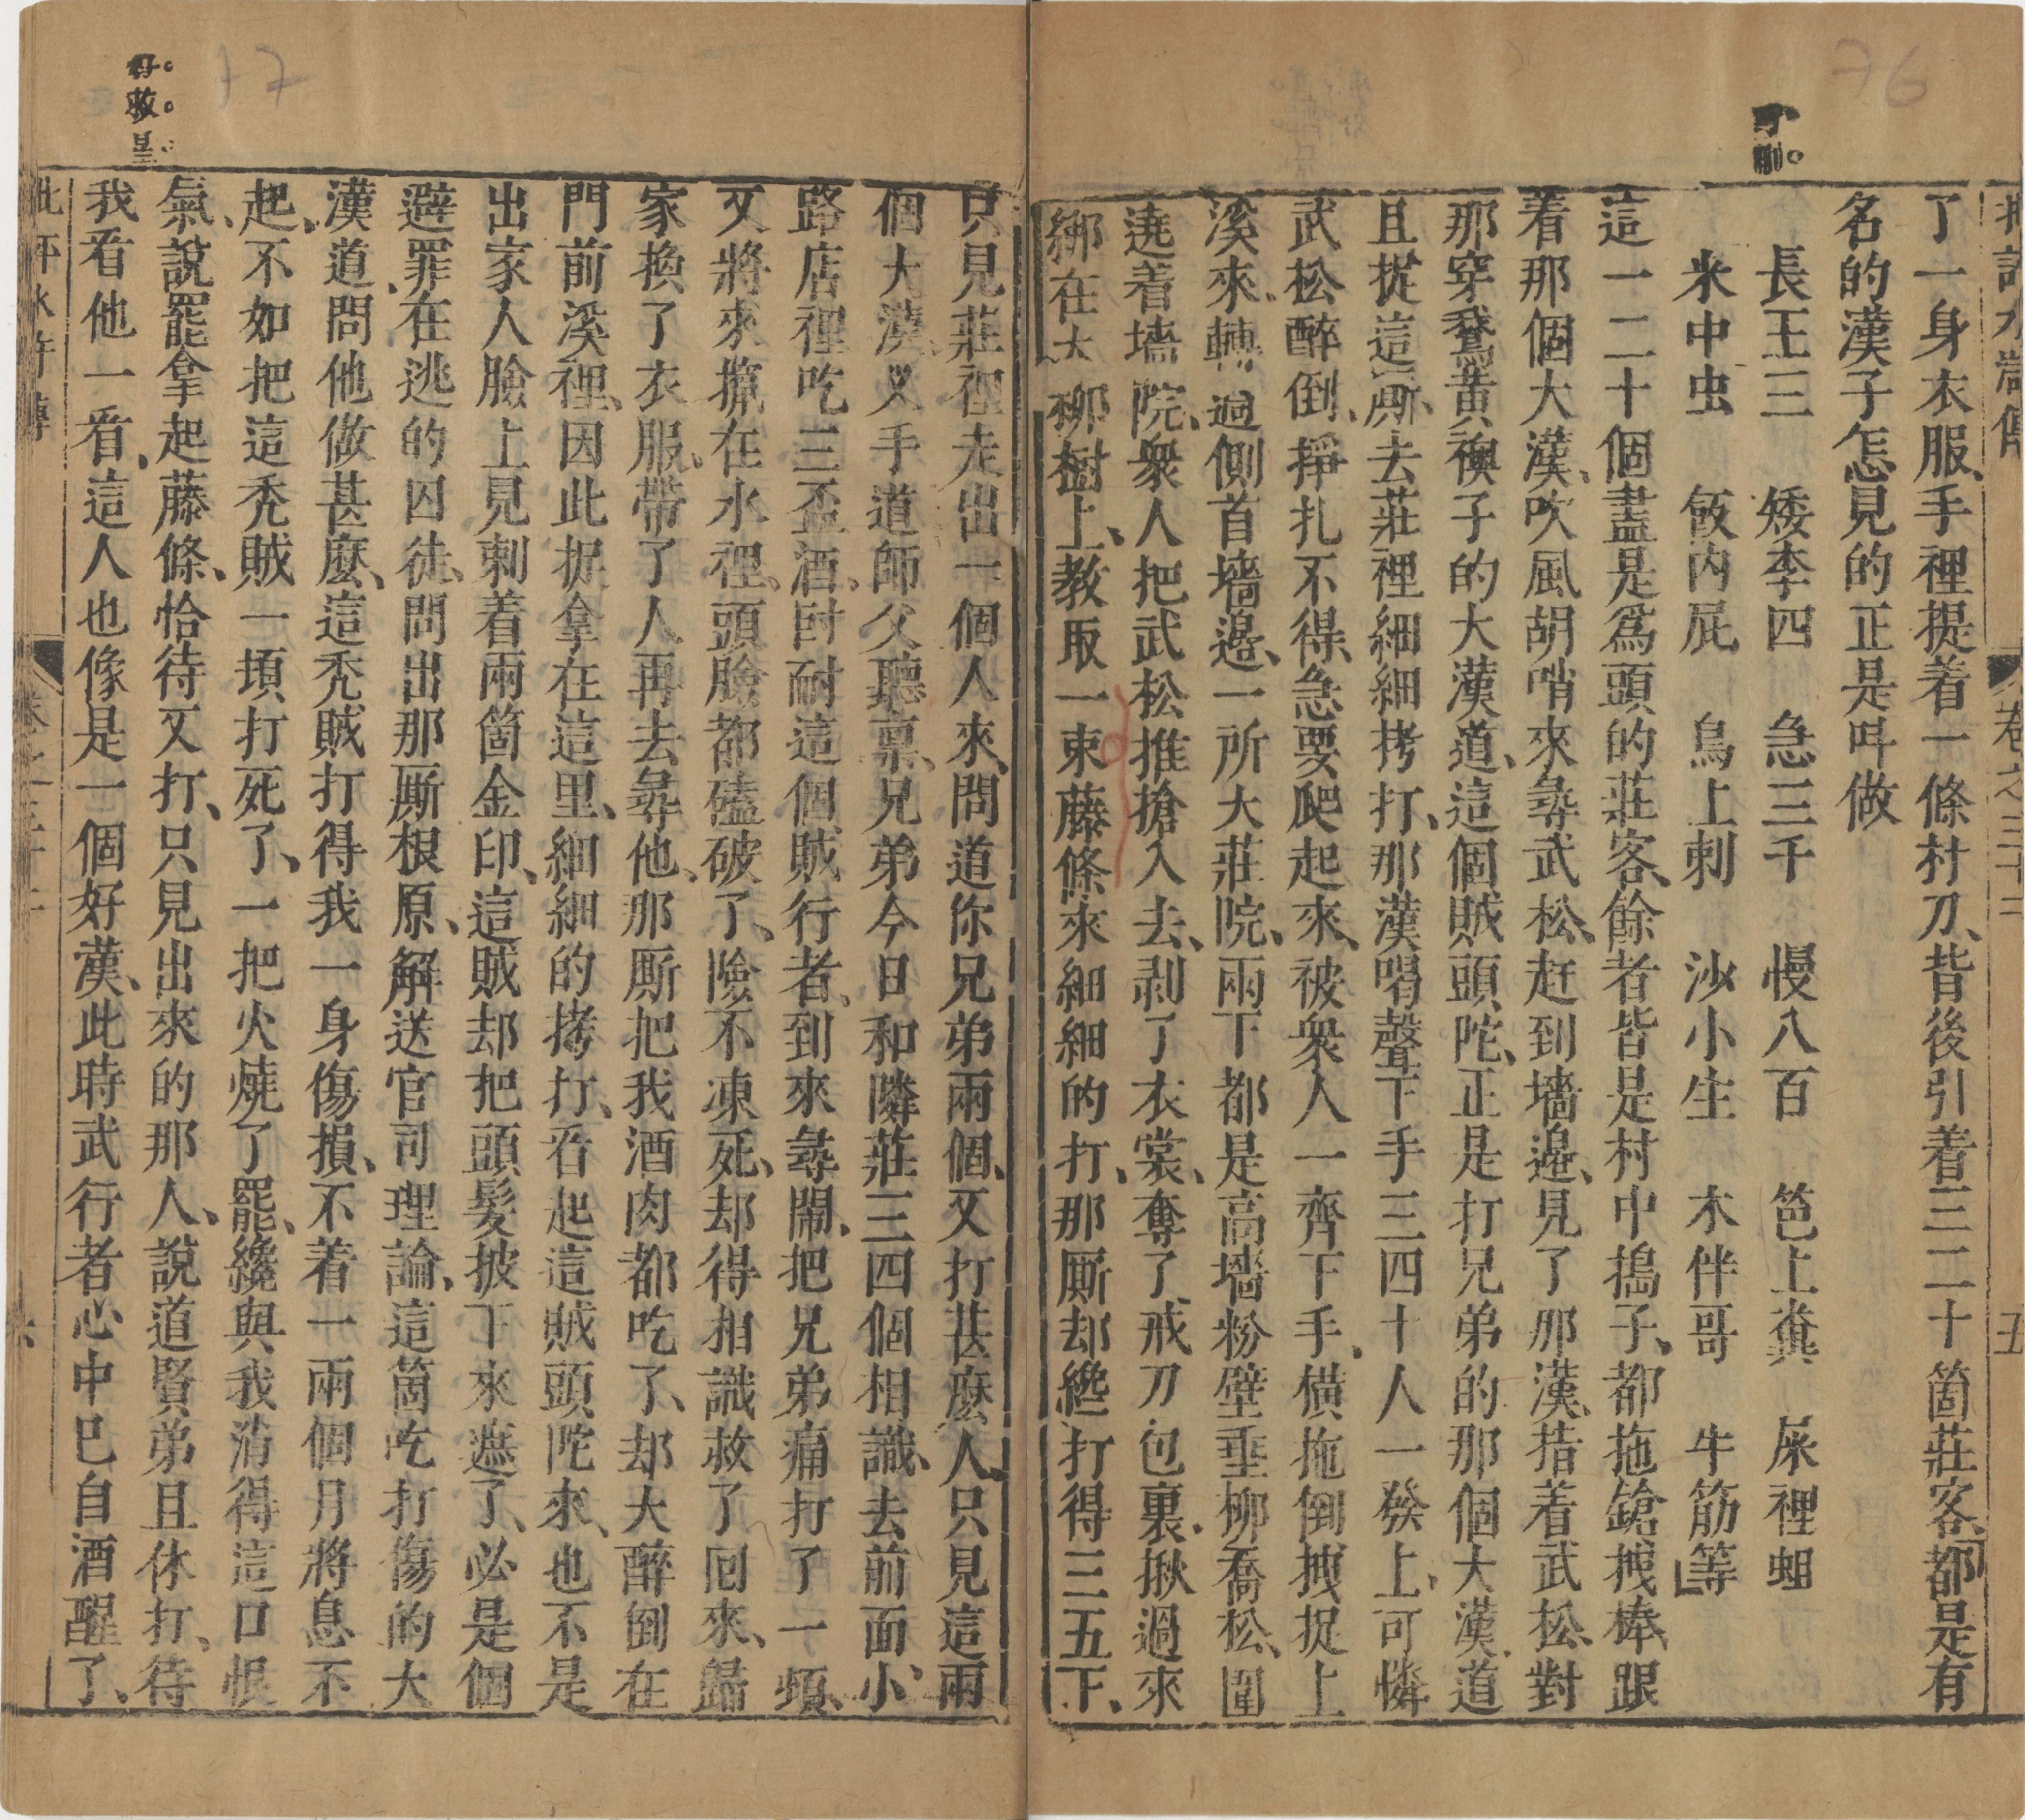 76
批評水滸傳
卷之三十二
五
了一身衣服、手裡提着一條村刀、背後引着三二十箇莊客、都是有
名的漢子怎見的正是呌做
長王三　矮李四　急三千　慢八百　笆上糞　屎裡蛆
米中虫　飯內屁　鳥上刺　沙小生　木伴哥　牛筋等
這一二十個盡是爲頭的莊客、餘者皆是村中搗子、都拖鎗拽棒、跟
着那個大漢、吹風胡哨來尋武松、赶到墻邉、見了那漢、指着武松、對
那穿鵞黃襖子的大漢道、這個賊頭陀、正是打兄弟的那個大漢道
且捉這厮、去莊裡細細拷打、那漢喝聲下手三四十人一發上、可憐
武松醉倒、掙扎不得、急要爬起來、被衆人一齊下手、橫拖倒拽捉上
溪來、轉過側首墻邉、一所大莊院、兩下都是高墻粉壁垂柳喬松、圍
遶着墻院、衆人把武松推搶入去、剥了衣裳、奪了戒刀包裹、揪過來
綁在大柳樹上、教取一束藤條來細細的打、那厮却纔打得三五下、
77
好救星
只見莊裡走出一個人來、問道你兄弟兩個、又打甚麼人、只見這兩
個大漢、叉手道師父聽禀、兄弟今日和隣莊三四個相識、去前面小
路店裡吃三盃酒、叵耐這個賊行者、到來尋鬧、把兄弟痛打了一頓、
又將來攛在水裡、頭臉都磕破了、險不凍死、却得相識救了囘來、歸
家換了衣服、帶了人再去尋他、那厮把我酒肉都吃了、却大醉倒在
門前溪裡、因此捉拿在這里、細細的拷打、看起這賊頭陀來、也不是
出家人臉上見刺着兩箇金印、這賊却把頭髮披下來遮了、必是個
避罪在逃的囚徒、問出那厮根原、解送官司理論、這箇吃打傷的大
漢道、問他做甚麼、這秃賊打得我一身傷損、不着一兩個月將息不
起、不如把這秃賊一頓打死了、一把火燒了罷、纔與我消得這口恨
氣、說罷拿起藤條、恰待又打、只見出來的那人、說道賢弟且休打、待
我看他一看、這人也像是一個好漢、此時武行者心中已自酒醒了、
批評水滸傳
六